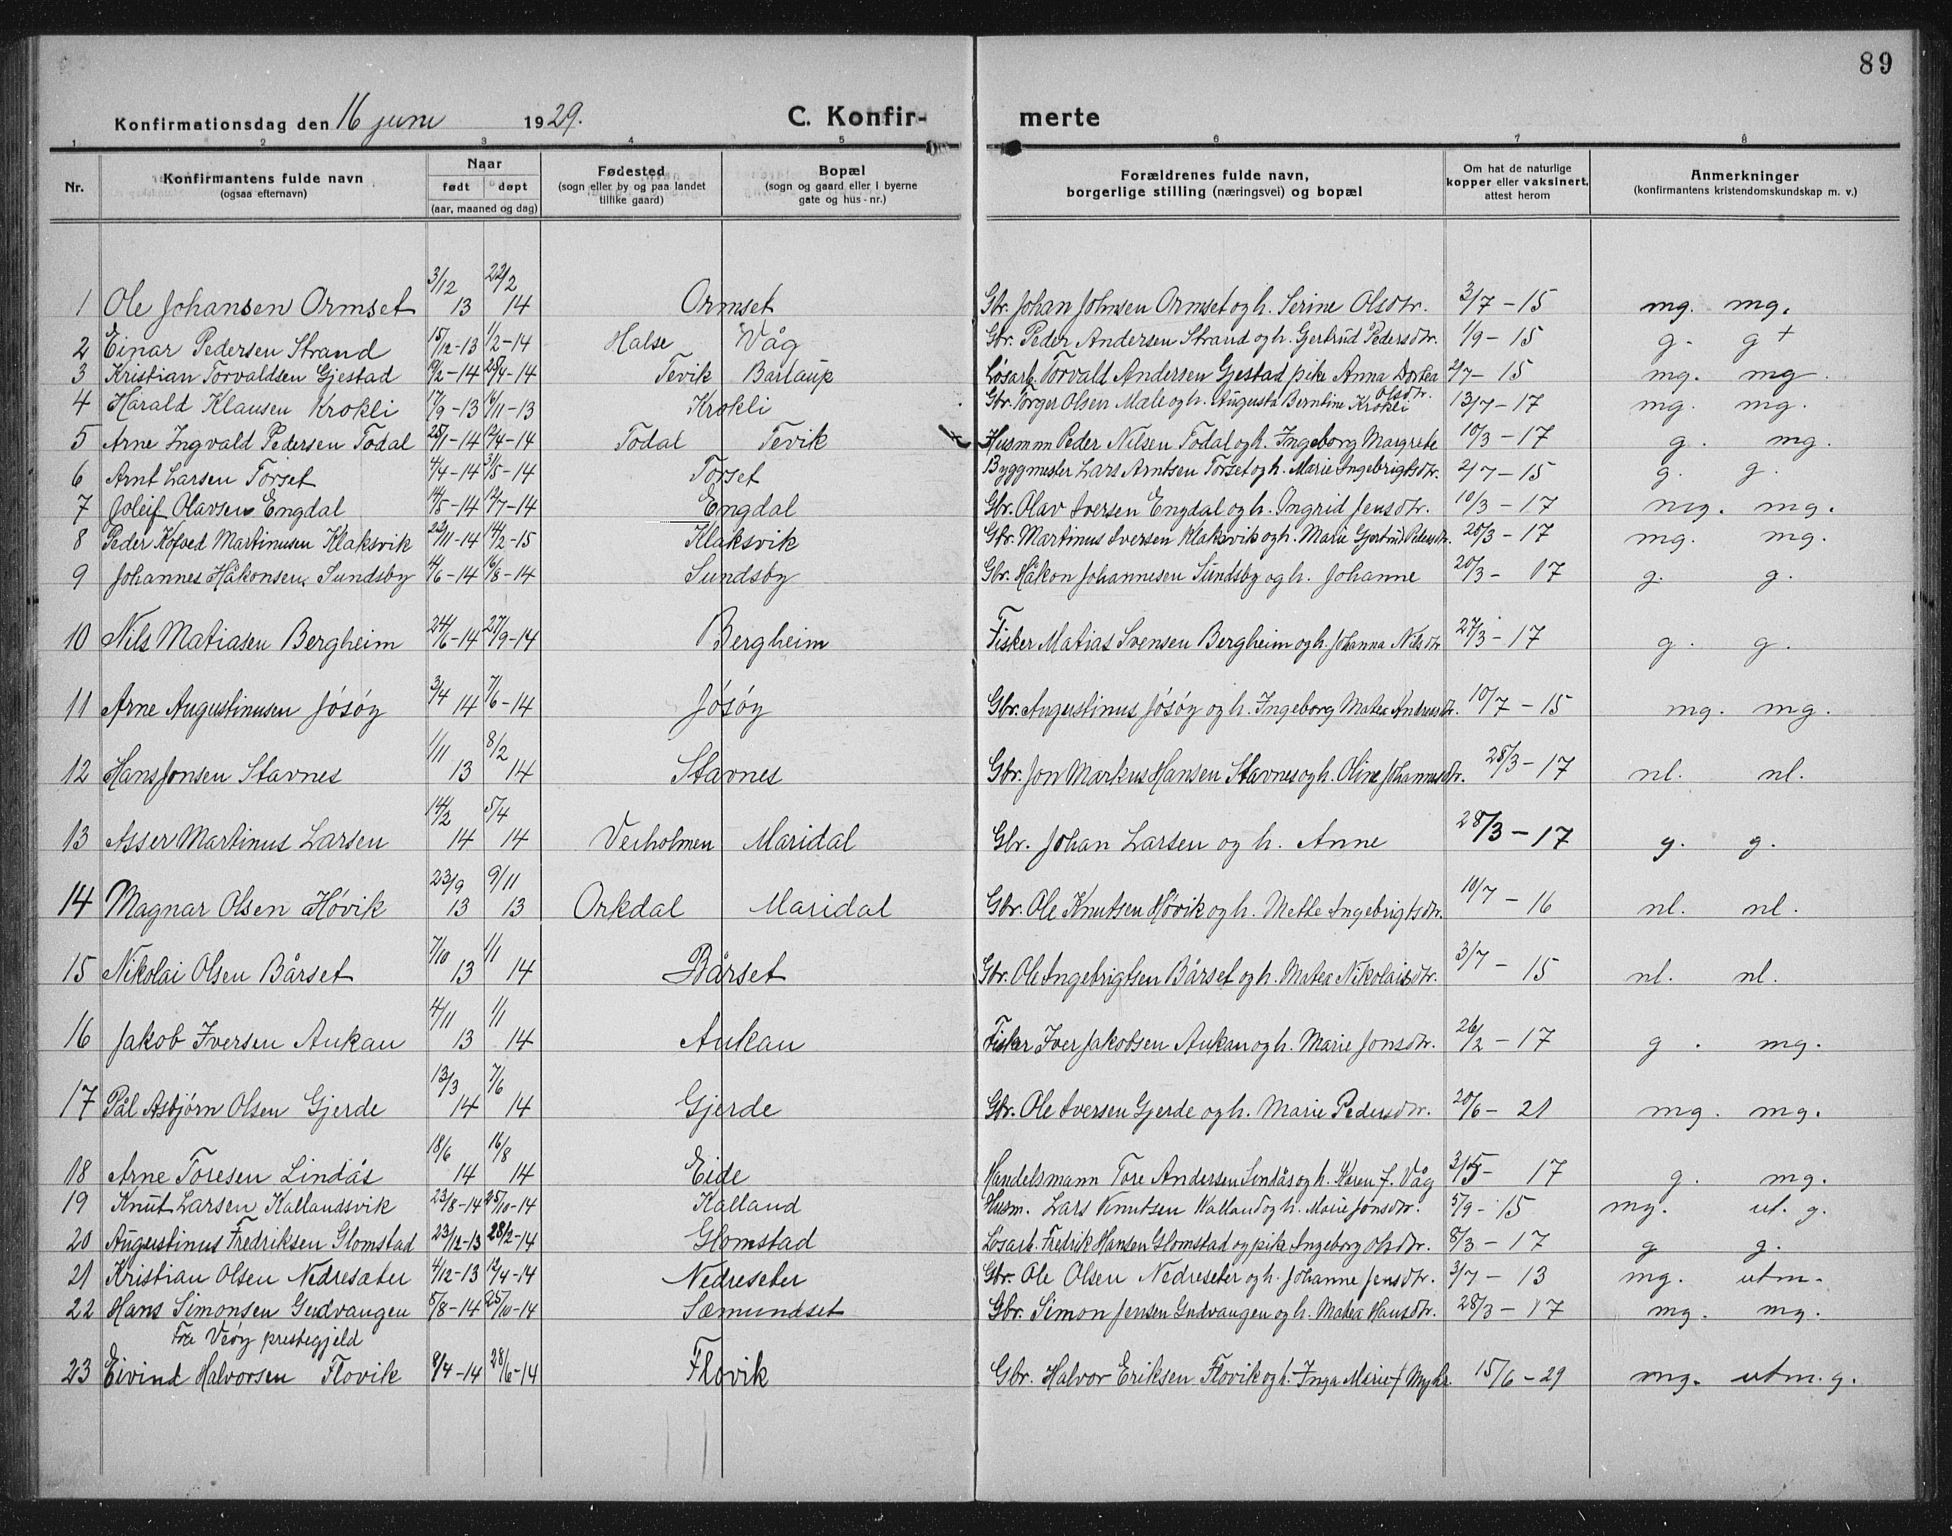 89
Konfirmationsdag den 16 juni 1929. C. Konfir- merte
1 2 3 4 5 6 7 8
Nr. Konfirmantens fulde navn (ogsaa efternavn) Naar født døpt (aar, maaned og dag) Fødested (sogn eller by og paa landet tillike gaard) Bopæl (sogn og gaard eller i byerne gate og hus-nr.) Forældrenes fulde navn, borgerlige stilling (næringsvei) og bopæl Om hat de naturlige kopper eller vaksinert, attest herom Anmerkninger (konfirmantens kristendomskundskap m. v.)
1 Ole Johansen Ormset 3/12 13 22/2 14 Ormset Gbr. Johan Johnsen Ormset og h. Serine Olsdtr. 3/7 - 15 mg. mg.
2 Einar Pedersen Strand 15/12-13 1/2-14 Halse Våg Gbr. Peder Andersen Strand og h. Gjertrud Pedersdtr. 1/9 - 15 g. g+
3 Kristian Torvaldsen Gjestad 19/2-14 25/4-14 Tevik Bårlaup Løsarb. Torvald Andersen Gjestad pike Anna Dortea Olsdtr. 2/7 - 15 mg. mg.
4 Harald Klausen Krokli 17/9-13 16/11-13 Krokli Gbr. Torger Olsen Mæle og h. Augusta Berntine Krokli 13/7 - 17 mg. mg.
5 Arne Ingvald Pedersen Todal 25/1-14 12/4-14 Todal Tevik Husmm Peder Nilsen Todal og h. Ingeborg Margrete 10/3 - 17 g. mg.
6 Arnt Larsen Torset 4/4-14 31/5-14 Torset Byggmester Lars Arntsen Torset og h. Marie Ingebrigtsdtr. 2/7 - 15 g. g.
7 Joleif Olavsen Engdal 14/5-14 12/7-14 Engdal Gbr. Olav Iversen Engdal og h. Ingrid Jensdtr. 10/3 - 17 mg. mg.
8 Peder Kofoed Martinusen Klaksvik 22/11-14 14/2-15 Klaksvik Gbr. Martinus Iversen Klaksvik og h. Marie Gjertrud Pedersdtr. 20/3 - 17 mg. mg.
9 Johannes Håkonsen Sundsby 4/6-14 16/8-14 Sundsby Gbr. Håkon Johannesen Sundsby og h. Johanne 20/3 - 17 g. g.
10 Nils Matiasen Bergheim 24/6-14 27/9-14 Bergheim Fisker Matias Svensen Bergheim og h. Johanna Nilsdtr 27/3 - 17 g. g.
11 Arne Augustinusen Jøsøy 3/4 14 7/6-14 Jøsøy Gbr. Augustinus Jøsøy og h. Ingeborg Matea Andreasdtr. 10/7 - 15 mg. mg.
12 Hans Jonsen Stavnes 1/11 13 8/2 14 Stavnes Gbr. Jon Markus Hansen Stavnes og h. Oline Johannesdtr. 28/3 - 17 nl. nl.
13 Asser Martinus Larsen 14/2 14 5/4 14 Veiholmen Maridal Gbr. Johan Larsen og h. Anne 28/3 - 17 g. g.
14 Magnar Olsen Høvik 23/9 13 9/11 13 Orkdal Maridal Gbr. Ole Knutsen Høvik og h. Mette Ingebrigtsdtr. 10/7 - 16 nl. nl.
15 Nikolai Olsen Bårset 7/10 13 1/1 14 Bårset Gbr. Ole Ingebrigtsen Bårset og h. Matea Nikolaisdtr. 3/7 - 15 nl. nl.
16 Jakob Iversen Aukan 4/11 13 1/1 14 Aukan Fisker Iver Jakobsen Aukan og h. Marie Jonsdtr. 26/2 - 17 g. mg.
17 Pål Asbjørn Olsen Gjerde 13/3 14 7/6 14 Gjerde Gbr. Ole Iversen Gjerde og h. Marie Pedersdtr. 20/6 - 21 mg. mg.
18 Arne Toresen Lindås 18/6 14 16/8 14 Eide Handelsmann Tore Andersen Lindås og h. Karen f. Våg 3/5 - 17 g. mg.
19 Knut Larsen Kallandsvik 23/8-14 25/10-14 Kalland Husm. Lars Knutsen Kalland og h. Marie Jonsdtr. 5/9 - 15 mg. ut. g.
20 Augustinus Fredriksen Glomstad 23/12-13 28/2-14 Glomstad Løsarb. Fredrik Hansen Glomstad og pike Ingeborg Olsdtr. 8/3 - 17 g g.
21 Kristian Olsen Nedresæter 4/12-13 12/4-14 Nedreseter Gbr. Ole Olsen Nedreseter og h. Johanne Jensdtr. 3/7 - 13 mg. utm.
22 Hans Simonsen Gudvangen 5/8-14 25/10-14 Sæmundset Gbr. Simon Jensen Gudvangen og h. Matea Hansdtr. 28/3 - 17 mg. mg.
Fra Veøy prestegjeld
23 Eivind Halvorsen Flovik 8/4-14 28/6-14 Flovik Gbr. Halvor Eriksen Flovik og h. Inga Marie f Myhr. 15/6 - 29 mg. utm. g.